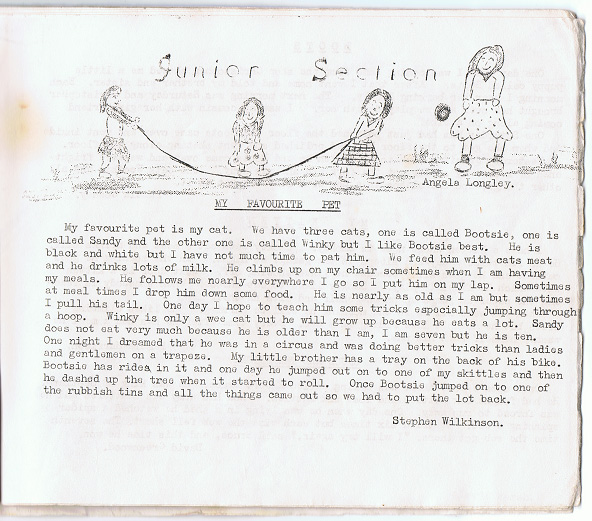 Junior Section
Angela Longley.
MY FAVOURITE PET
My favourite pet is my cat. We have three cats, one is called Bootsie, one is
called Sandy and the other one is called Winky but I like Bootsie best. He is
black and white but I have not much time to pat him. We feed him with cats meat
and he drinks lots of milk. He climbs up on my chair sometimes when I am having
my meals. He follows me nearly everywhere I go so I put him on my lap. Sometimes
at meal times I drop him down some food. He is nearly as old as I am but sometimes
I pull his tail. One day I hope to teach him some tricks especially jumping through
a hoop. Winky is only a wee cat but he will grow up because he eats a lot. Sandy
does not eat very much because he is older than I am, I am seven but he is ten.
One night I dreamed that he was in a circus and was doing better tricks than ladies
and gentlemen on a trapeze. My little brother has a tray on the back of his bike.
Bootsie has rides in it and one day he jumped out on to one of my skittles and then
he dashed up the tree when it started to roll. Once Bootsie jumped on to one of
the rubbish tins and all the things came out so we had to put the lot back.
Stephen Wilkinson.